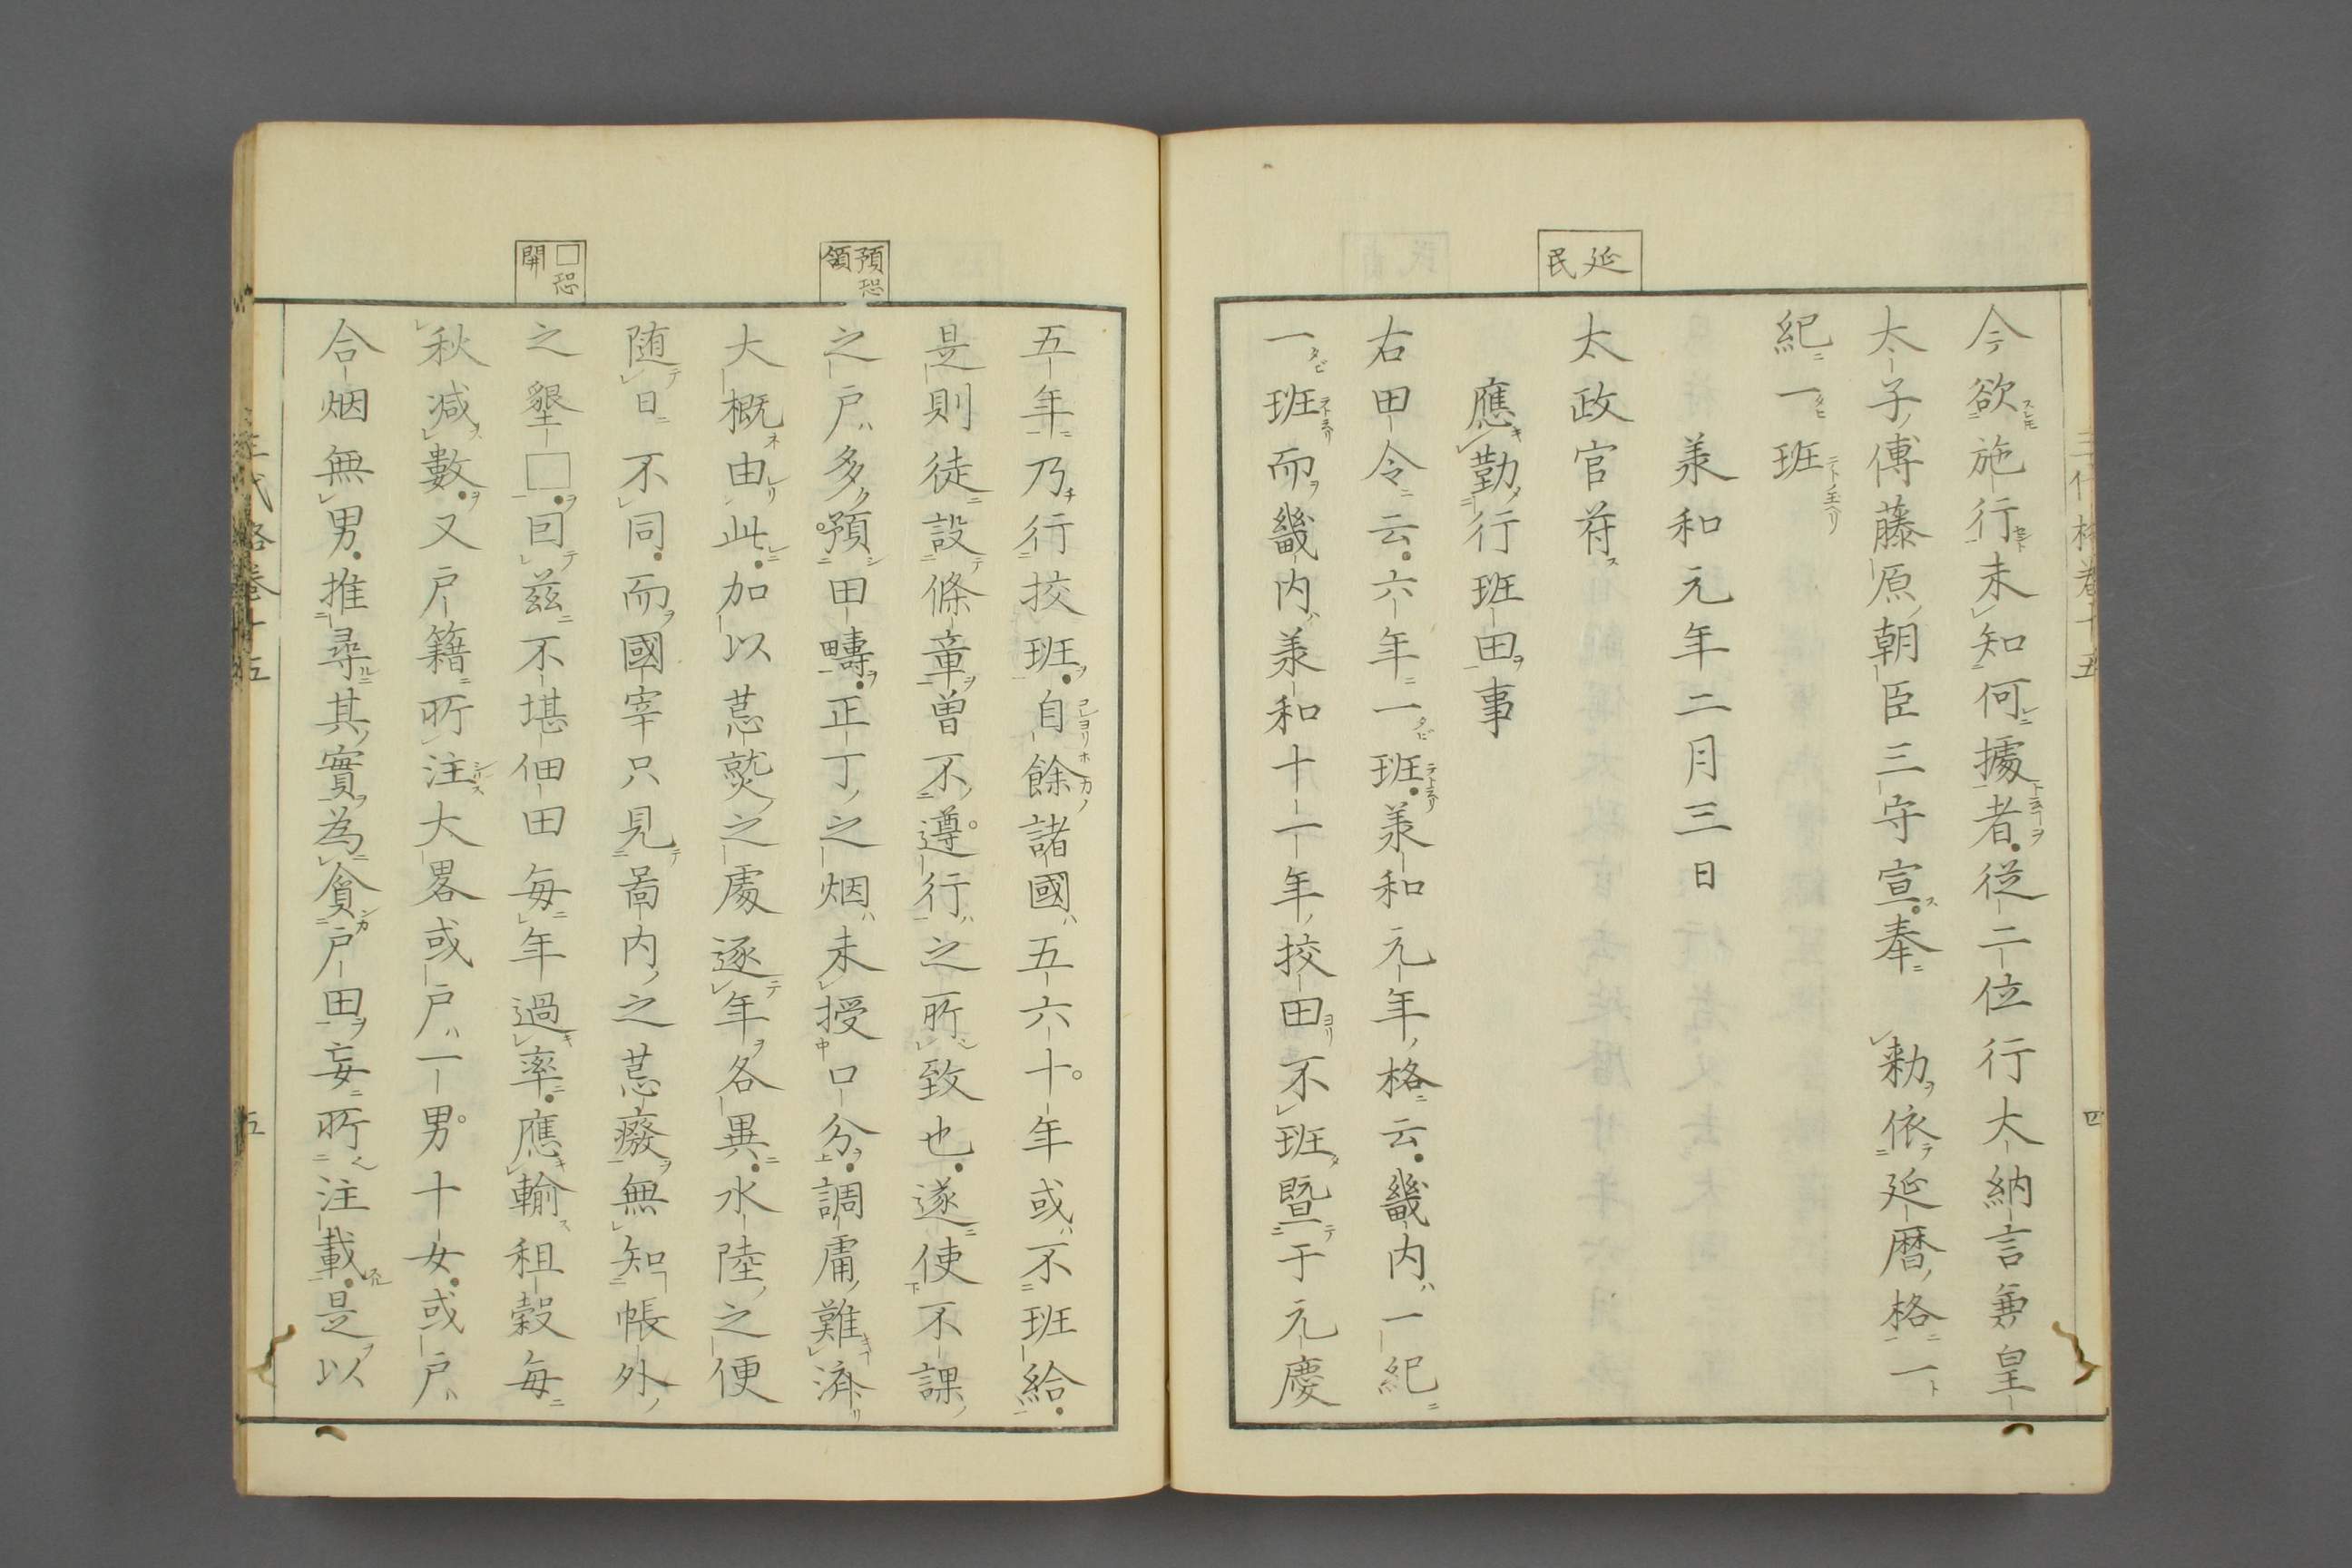 三代格卷十五
四
延民
今欲施行未知何據者從二位行大納言兼皇
太子傅藤原朝臣三守宣奉　勅依延暦格一
紀一班
羕和元年二月三日
太政官符
應勤行班田事
右田令云六年一班羕和元年格云畿内一紀
一班而畿内羕和十一年挍田不班曁于元慶
預恐領
□恐開
五年乃行挍班自餘諸國五六十年或不班給
是則徒設條章曽不遵行之所致也遂使不課
之戸多預田疇正丁之烟未授口分調庸難濟
大概由此加以荒熟之處逐年各異水陸之便
随日不同而國宰只見畨内之荒癈無知帳外
之墾□因茲不堪佃田毎年過率應輸租穀毎
秋減數又戸籍所注大畧或戸一男十女或戸
合烟無男推尋其實為貪戸田妄所注載是以
五